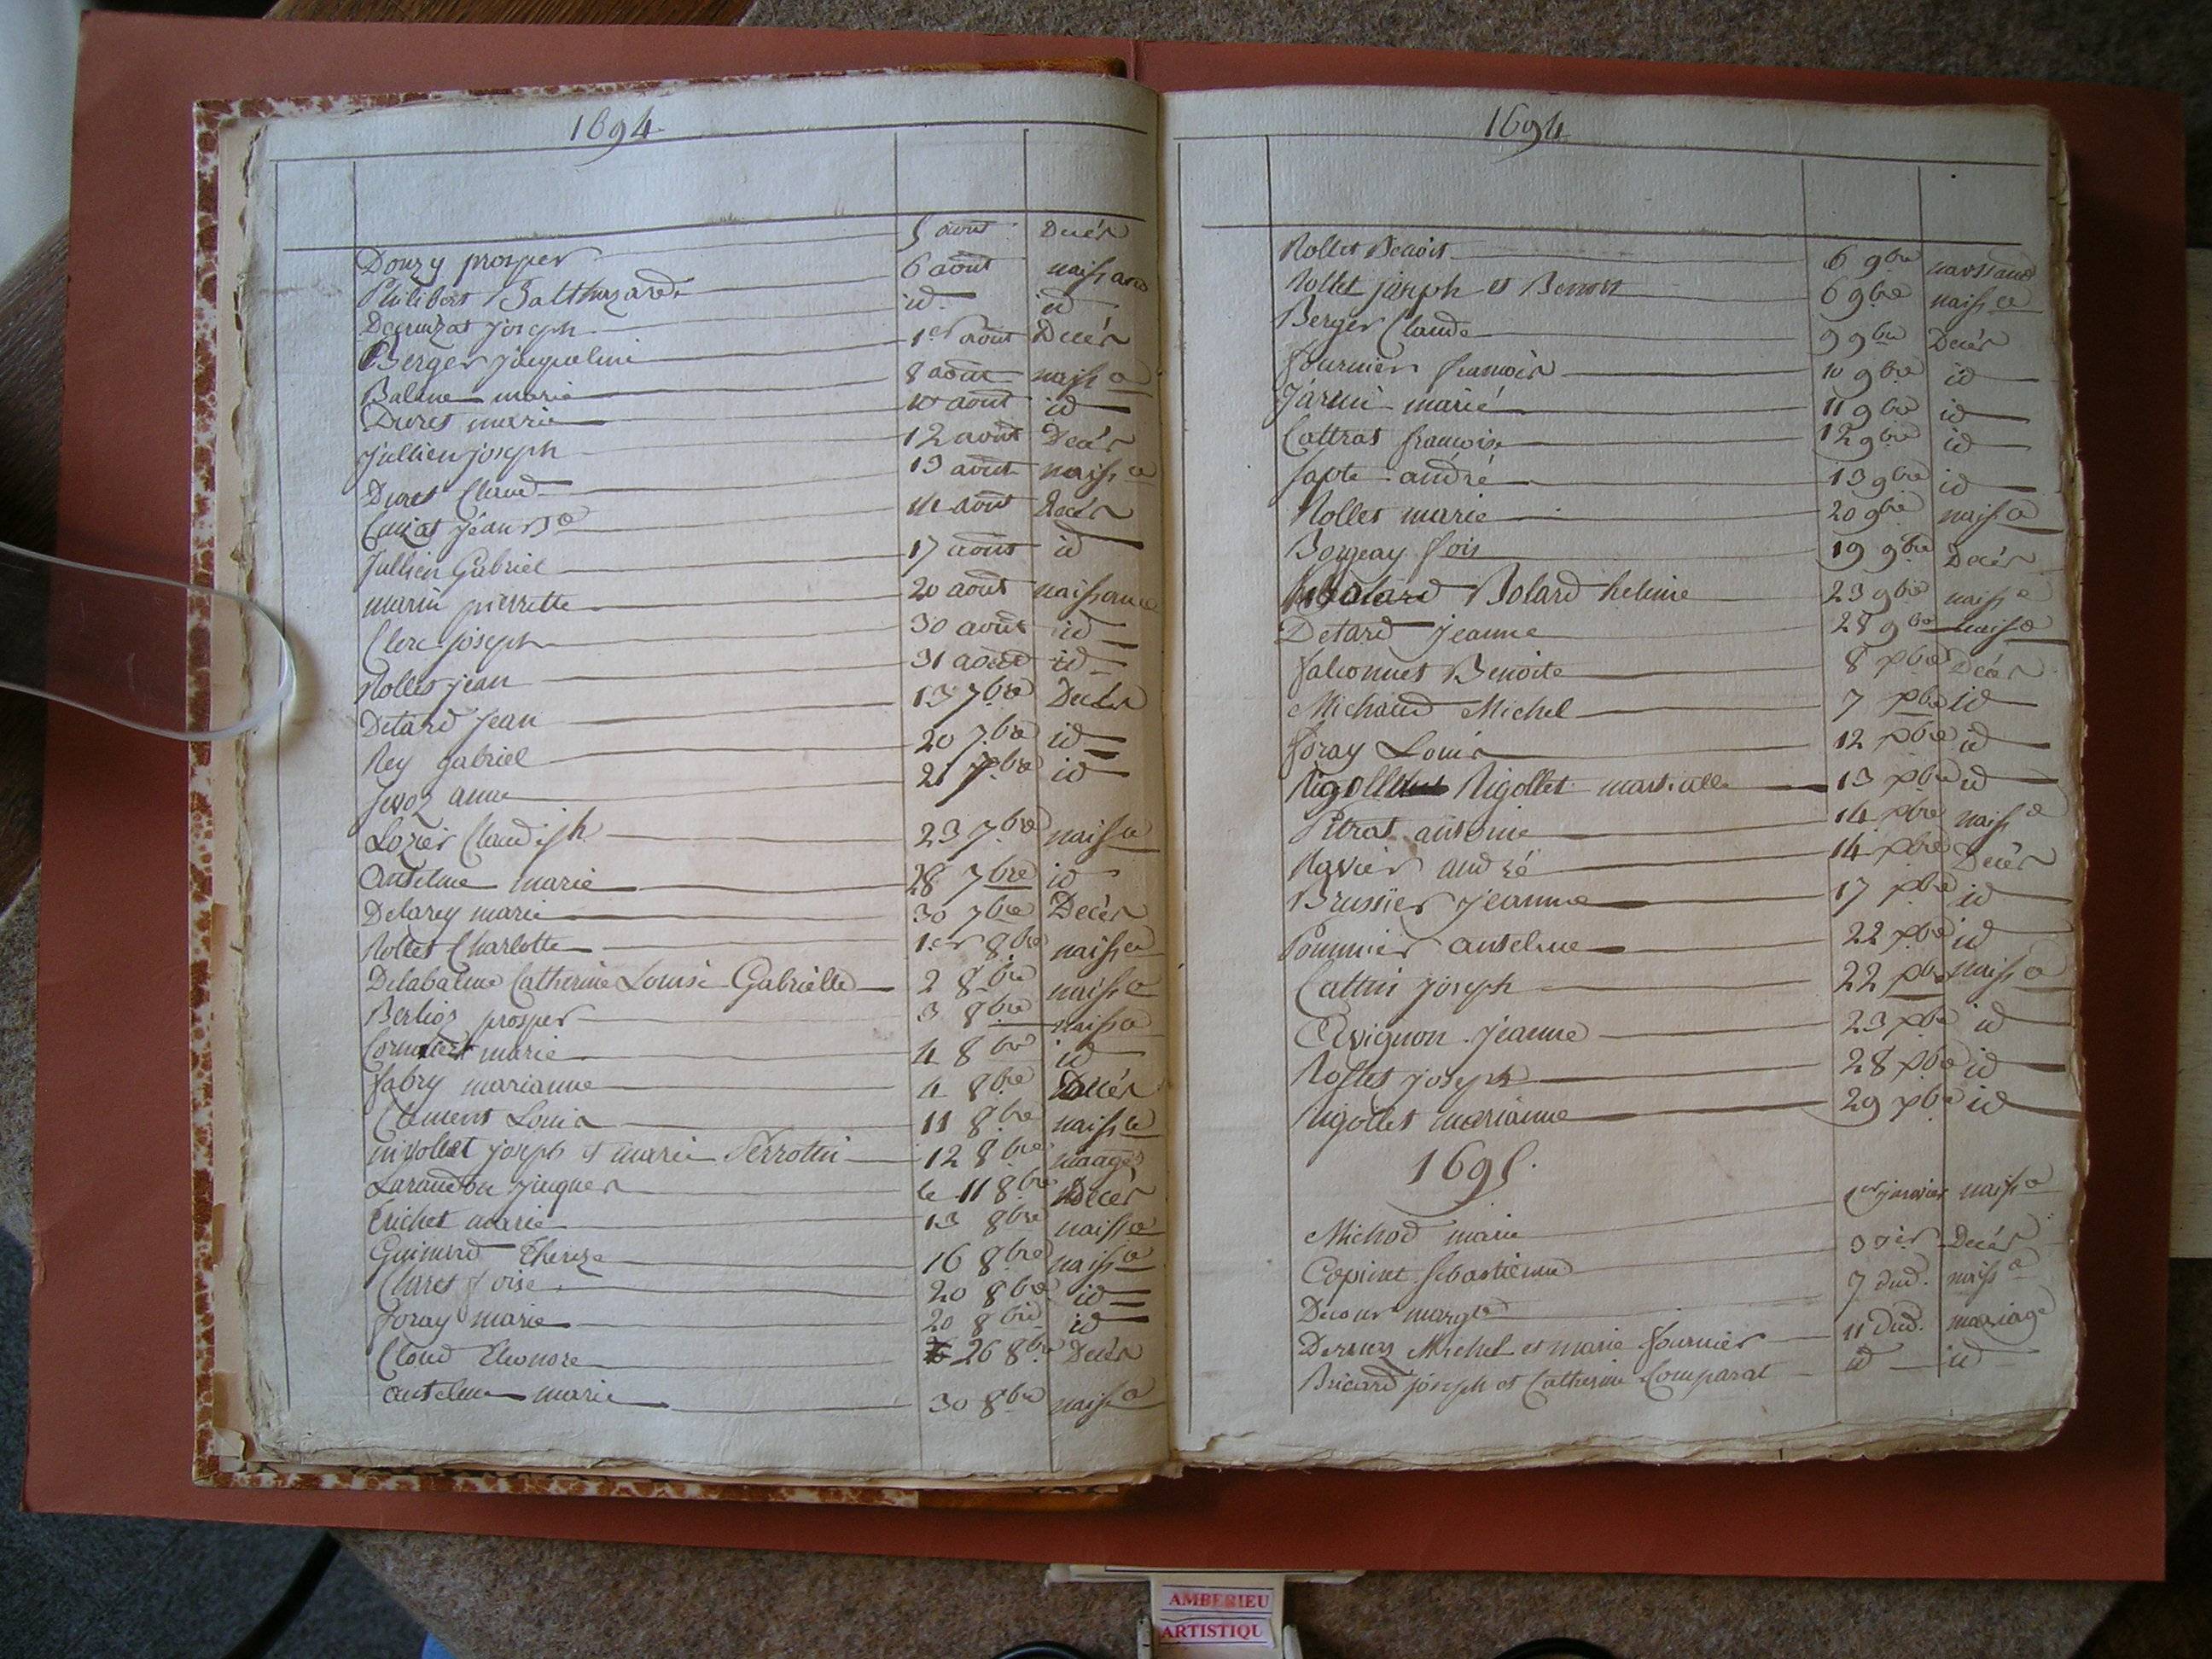 1694
Douzy prosper 5 aout Decés
Philibert Balthazard 6 aout naissance
joseph id id
Berger jacqueline 1er aout Decés
Balme marie 8 aout naissce
Duret marie 10 aout id
jullien joseph 12 aout Decés
Duret Claud 13 aout naissce
Cuzat jean Bte 14 aout Decés
Jullien Gabriel 17 aout id
marin pierrette 20 aout naissance
Clerc joseph 30 aout id
Rollet jean 31 aout id
Detard Jean 13 7bre Decés
Rey gabriel 20 7bre id
Jevoz anne 21 7bre id
Lozier Claud jph 23 7bre naissce
Anselme marie 28 7bre id
Delarey marie 30 7bre Decés
Rollet Charlotte 1er 8bre naissce
Delabalme Catherine Louise Gabrielle 2 8bre naissce
Berlioz prosper 3 8bre naissce
marie 4 8bre id
fabry marianne 4 8bre Decés
Clement Louis 11 8bre naissce
nivollet joseph et marie Perrotin 12 8bre
jaques le 11 8bre Decés
Trichet marie 13 8bre naissce
Guinard Thereze 16 8bre naissce
Claret foise 20 8bre id
foray marie 20 8bre id
Cloud Eleonore 26 8bre Decés
anselme marie 30 8bre naissce
1694
Rollet Benoit 6 9bre naissance
Rollet joseph et Benoit 6 9bre naissce
Berger Claude 9 9bre Decés
fournier francois 10 9bre id
marie 11 9bre id
Cottrat francoise 12 9bre id
andré 13 9bre id
Rollet marie 20 9bre naissce
Bougeay fois 19 9bre Decés
Bolard helene 23 9bre naissce
Detard jeanne 28 9bre naissce
falconnet Benoite 8 xbre Decés
Michaud Michel 7 xbre id
foray Louis 12 xbre id
Rigollet martialle 13 xbre id
Pitrat antoine 14 xbre naissce
Ravier andré 14 xbre Decés
Brussier jeanne 17 xbre id
Pommier anselme 22 xbre id
Cattin joseph 22 xbre naissce
Avignon jeanne 23 xbre id
Rollet joseph 28 xbre id
Rigollet marianne 29 xbre id
1695.
Michod marie 1er janvier naissce
Copinet Sebastienne 3 Jer Decés
Decour margte 7 dud. naissce
Michel et marie fournier 11 dud. mariage
Bricard joseph et Catherine Comparat id id
AMBERIEU
ARTISTIQU